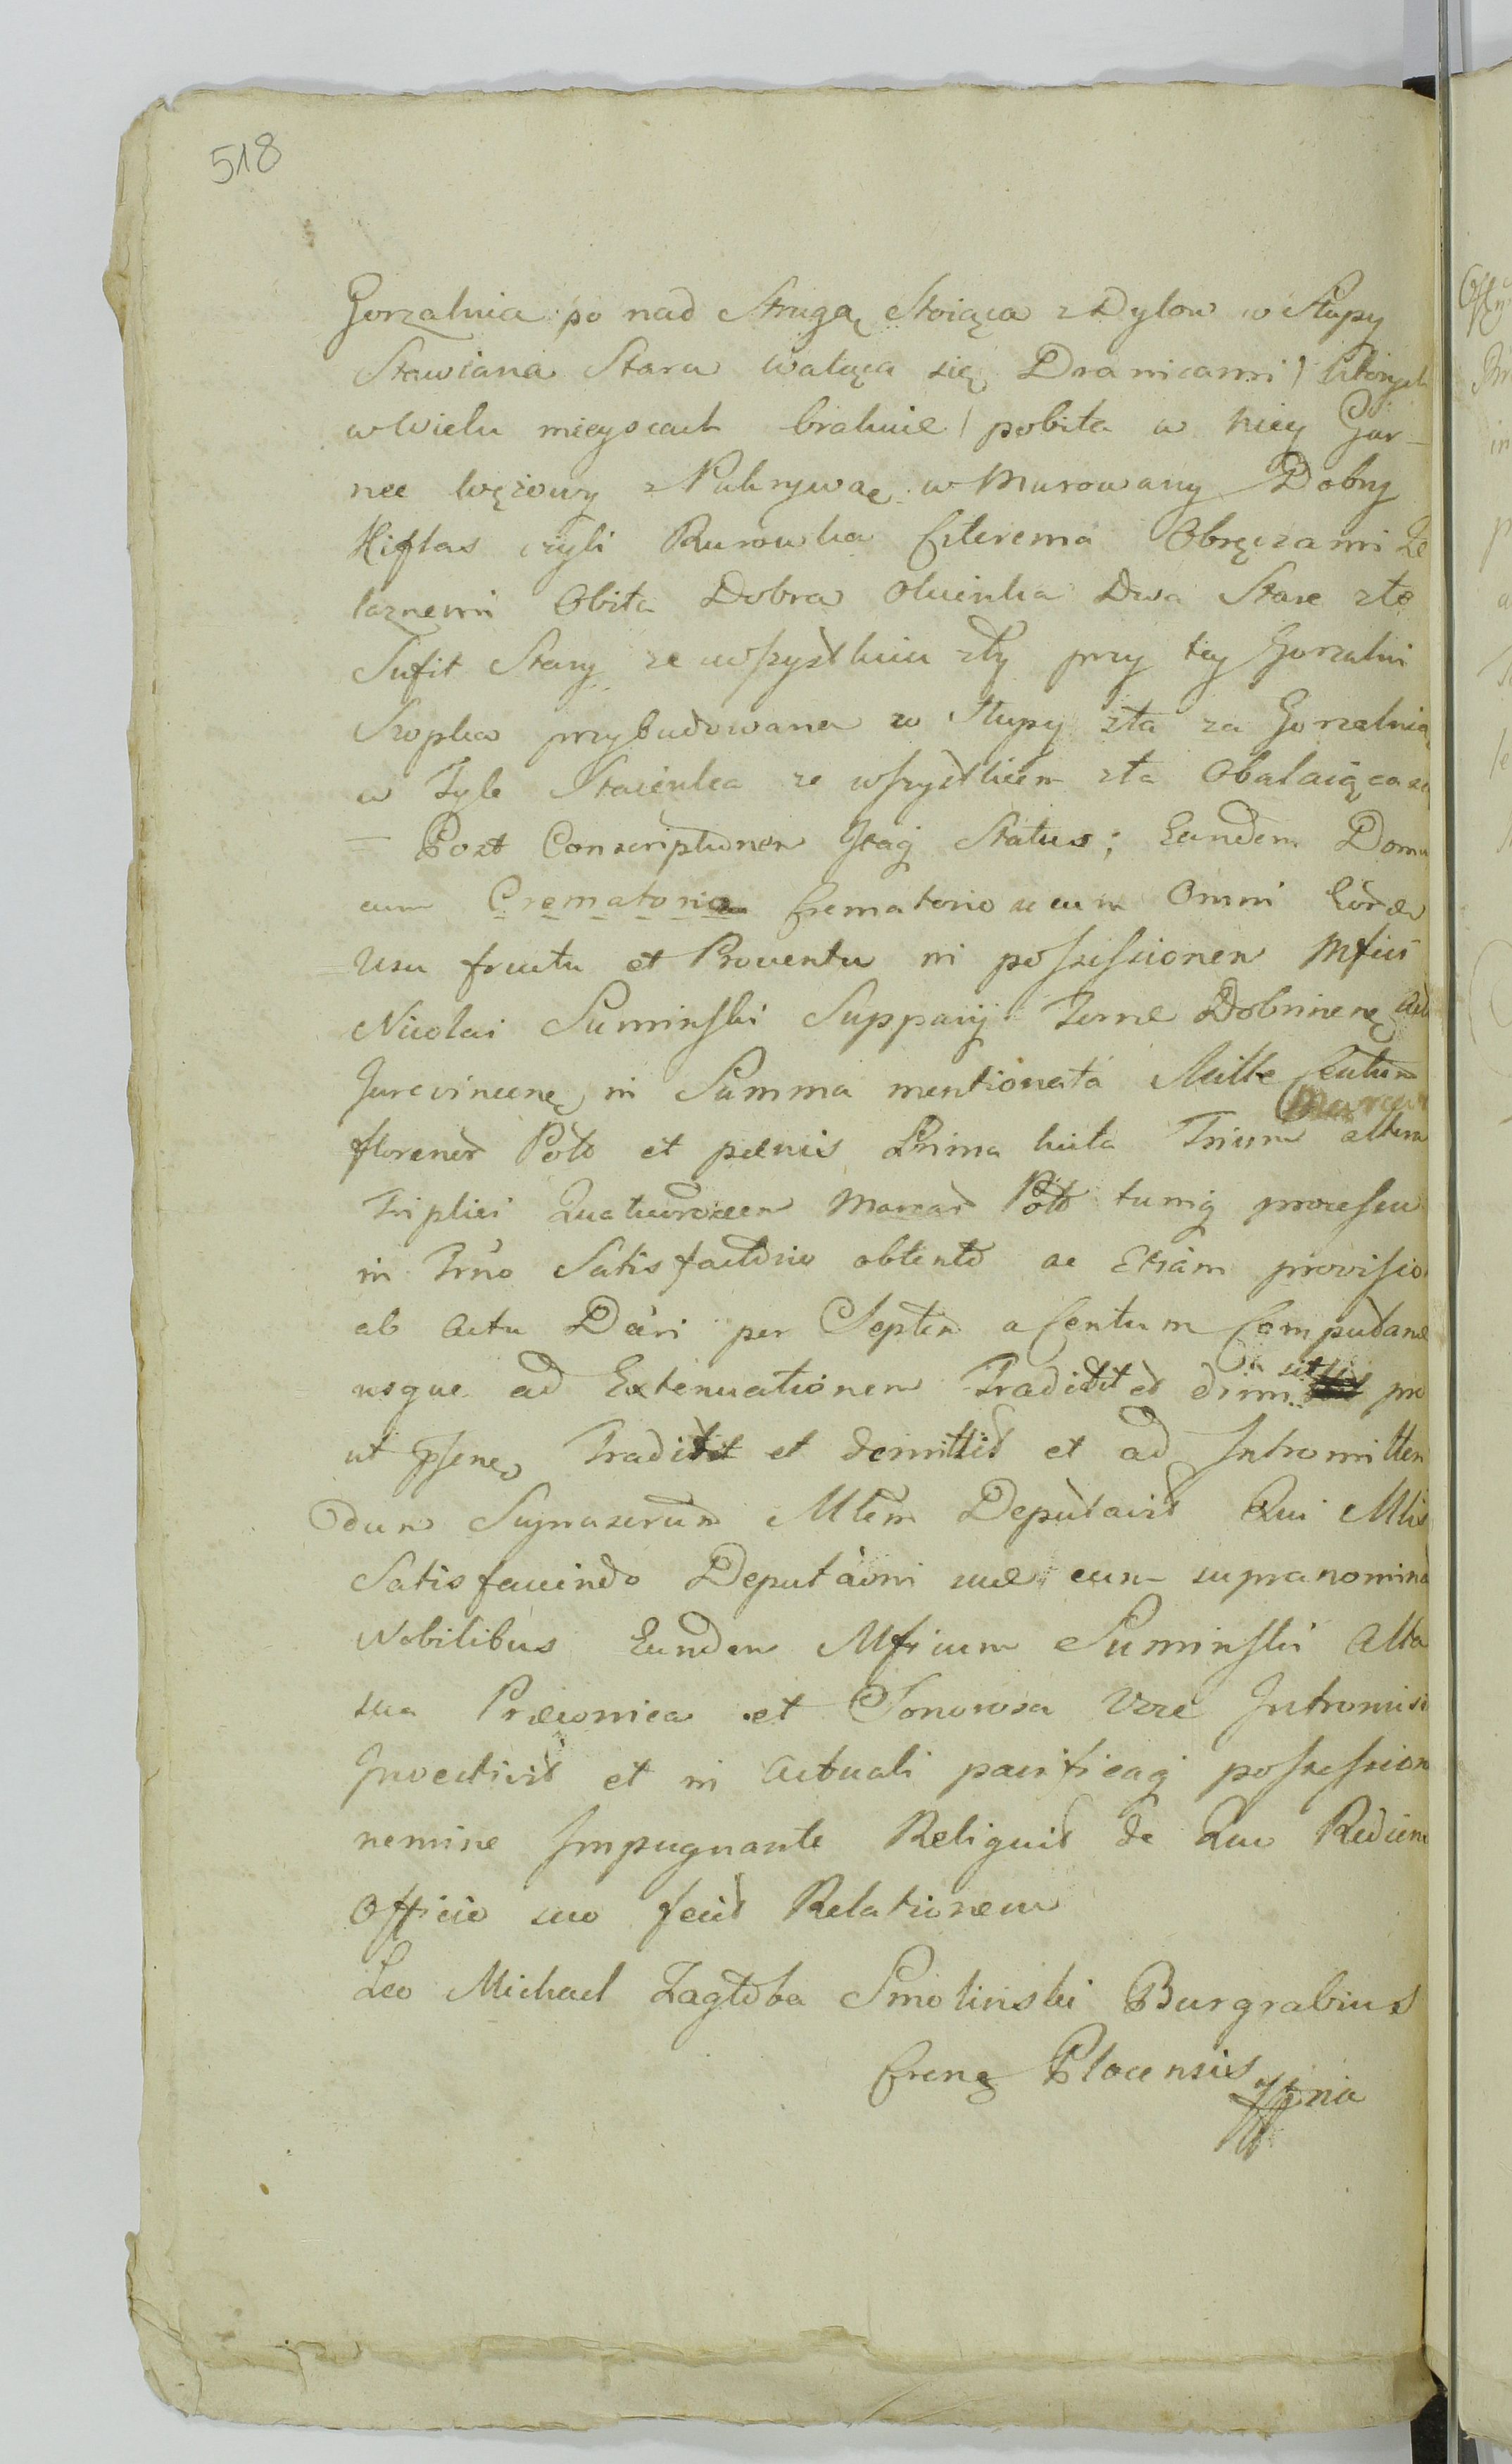 518
Gorzalnia po nad Strugą Stoiąca z Dylow w Słupy
Stawiana Stara waląca się Dranicami / ktorych
w wielu mieyscach brakuie / pobita w niey Gar-
nec wężowy z Pokrywąę w Murowany Dobry
Kiflas czyli Rurowka Czterema Obręczami Że
laznemi Obita Dobra Okienka Dwa Stare złe
Sufit Stary ze wszystkim zły przy tey Gorzalni
Szopka przybudowana w Słupy zła za Gorzalnią
w Tyle Staienka ze wszystkiem zła Obalaiąca się
Post Conscriptionem Itaq Status; Eandem Domu
cum Crematoria Crematorio ac cum Omni Eorde
Usu fructu et Proventu in possessionem Mfici
Nicolai Suminski Supparij Terræ Dobrinenę ad
Jurevincenę in Summa mentionata Mille Centum
florenor Polo et pœnis Prima lucta Trium Marcar altera
Triplici Quatuordecem Marcar Polo tumq processu
in Trno Satisfactorio obtento ac Etiam provisio
ab actu Dari per Septem a Centum Computane
usque ad Extenuationem Tradidit et dimi sit pro
ut Ipsenę Tradidit et demittit et ad Intromitten
dum Suprascrum Mlem Deputavit Qui Mlis
Satisfaciendo Deputaoni suæ cum supranomina
Nobilibus Eundem Mficum Suminski Alta
sua Præconica et Sonorosa Voce Intromisi
Invectivit et in Actuali pacificaq possession
nemine Impugnante Reliquit de Quo Rediens
Officio suo fecit Relationem
Leo Michael Zagłoba Smolinski Burgrabius
Crenę Plocensis